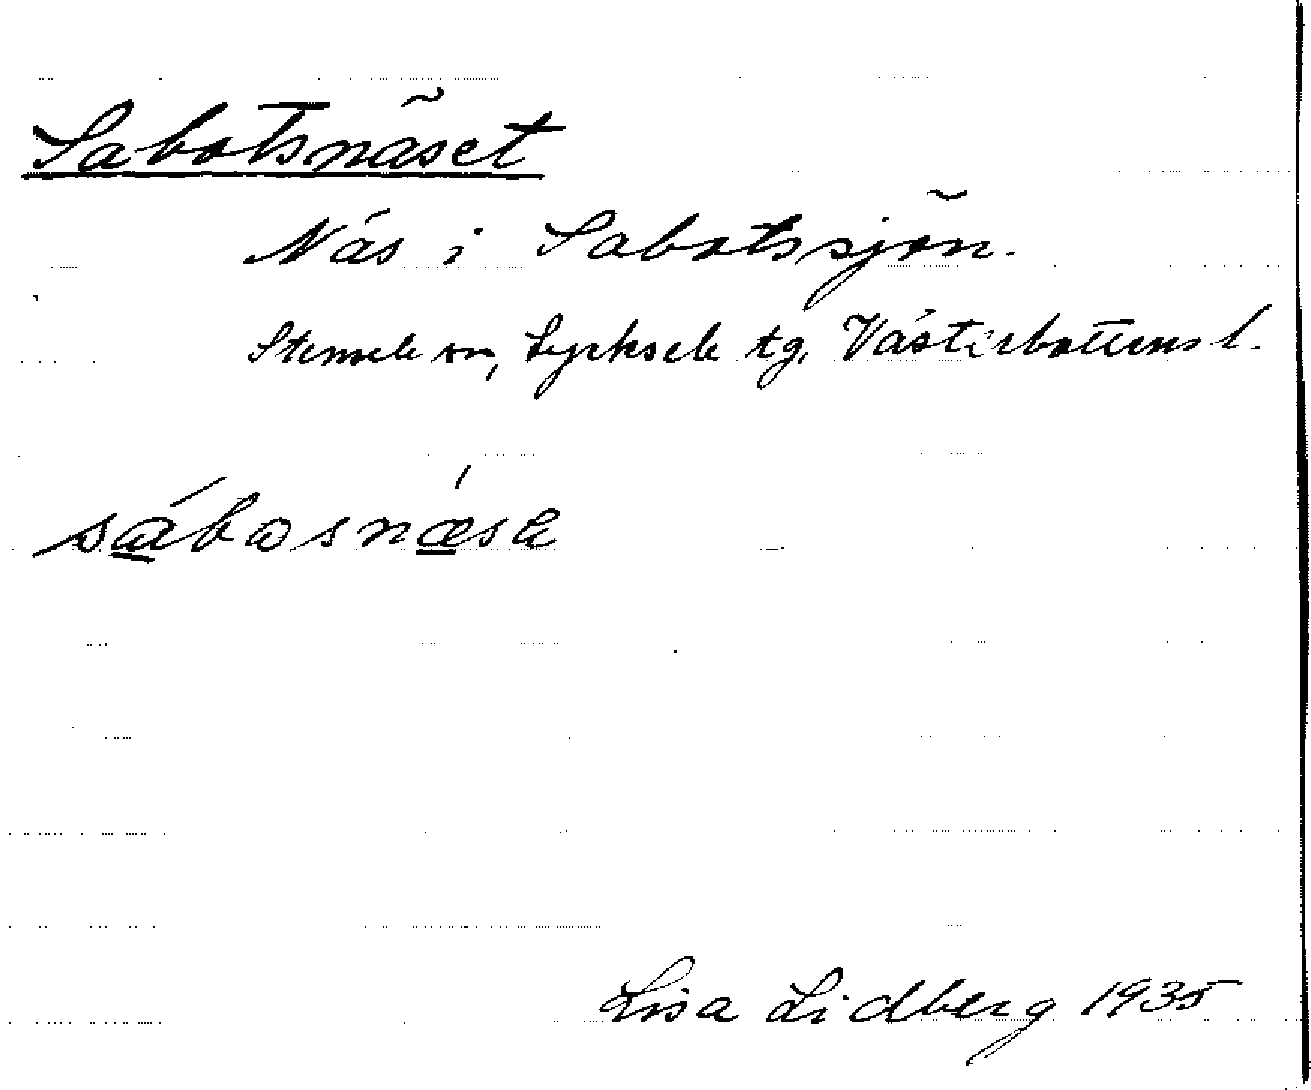 Sabotsnäset
Näs i Sabotssjön.
Stensele sn, Lycksele tg, Västerbottens l.
sábosnǽse
Lisa Lidberg 1935